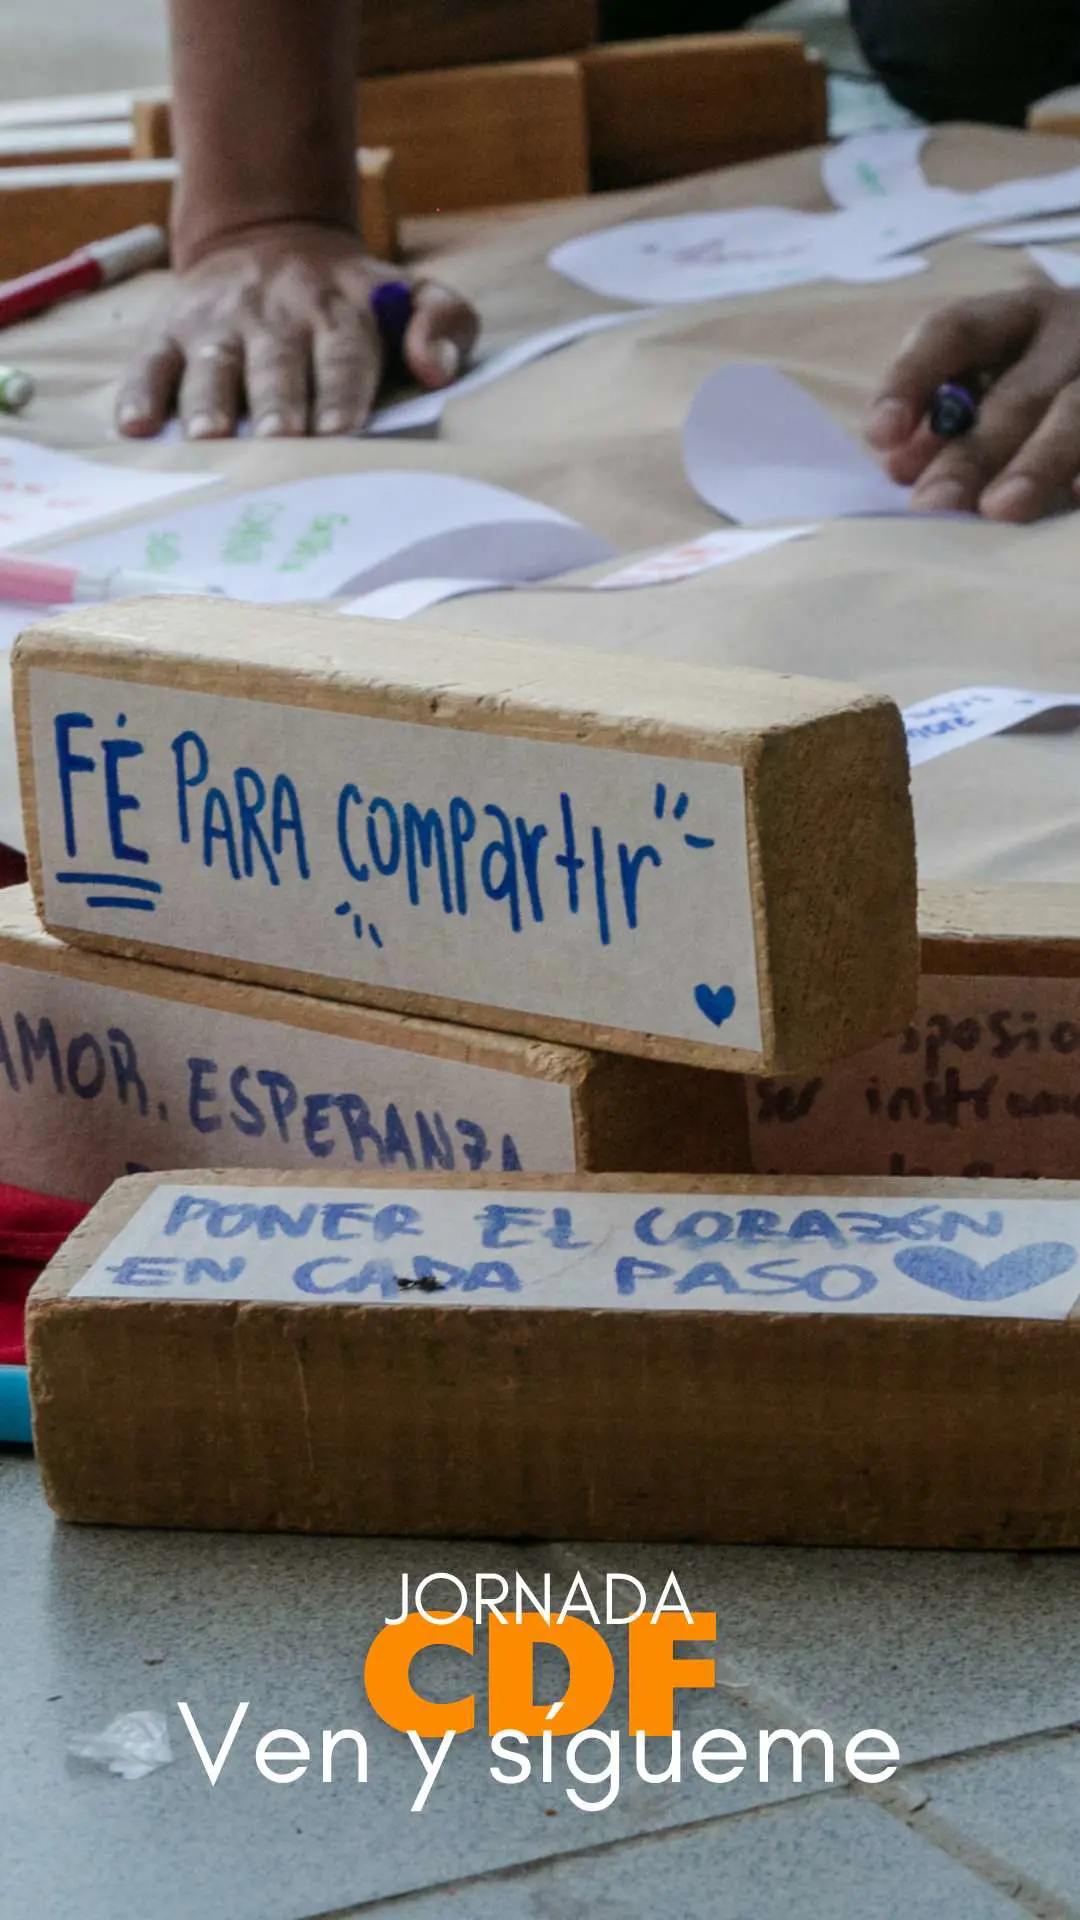 FÉ PARA COMPARTIR
AMOR, ESPERANZA
ser
PONER EL CORAZÓN
EN CADA PASO
JORNADA
CDF
Ven y sígueme